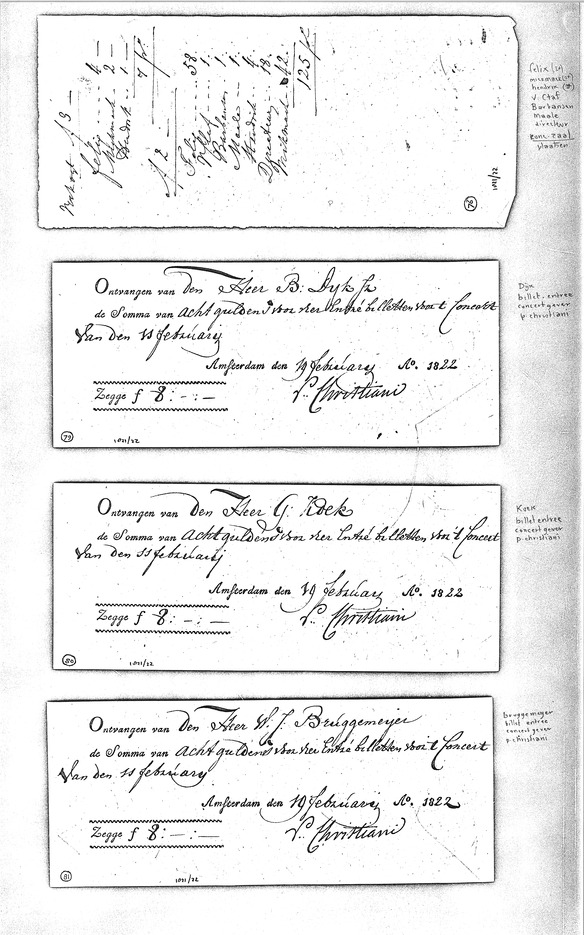 f 3 —
felix ---- 4 —
2 —
1 —
7 f
f 2 —
Felix ---- 53.
1.
Barbansen -- 1.
Maale ---- 1.
Hendrik --- 4.
Directeur --- 18.
42.
125 f
78
1021/22
felix (2)
hendrix (2)
v. Claf
Barbansen
maale
directeur
conc. zaal
plaatsen
Ontvangen van den Heer B: Dyk Jr
de Somma van acht guldens voor vier Entré billetten voor 't Concert
Van den 11 february
Amsterdam den 19 february Aº. 1822
Zegge f 8: - : —
P.. Christiani
79
1021/22
Dijk
billet. entree
concert gever
p christiani
Ontvangen van den Heer G: Koek
de Somma van acht guldens voor vier Entré billetten voor 't Concert
Van den 11 februarij
Amsterdam den 19 february Aº. 1822
Zegge f 8: - : —
P.. Christiani
80
1021/22
Koek
billet entree
concert gever
p. christiani
Ontvangen van den Heer W. J. Bruggemeijer
de Somma van acht guldens voor vier Entré billetten voor 't Concert
Van den 11 february
Amsterdam den 19 february Aº. 1822
Zegge f 8: — : —
P.. Christiani
81
1021/22
bruggemeyer
billet entree
concert gever
p. christiani